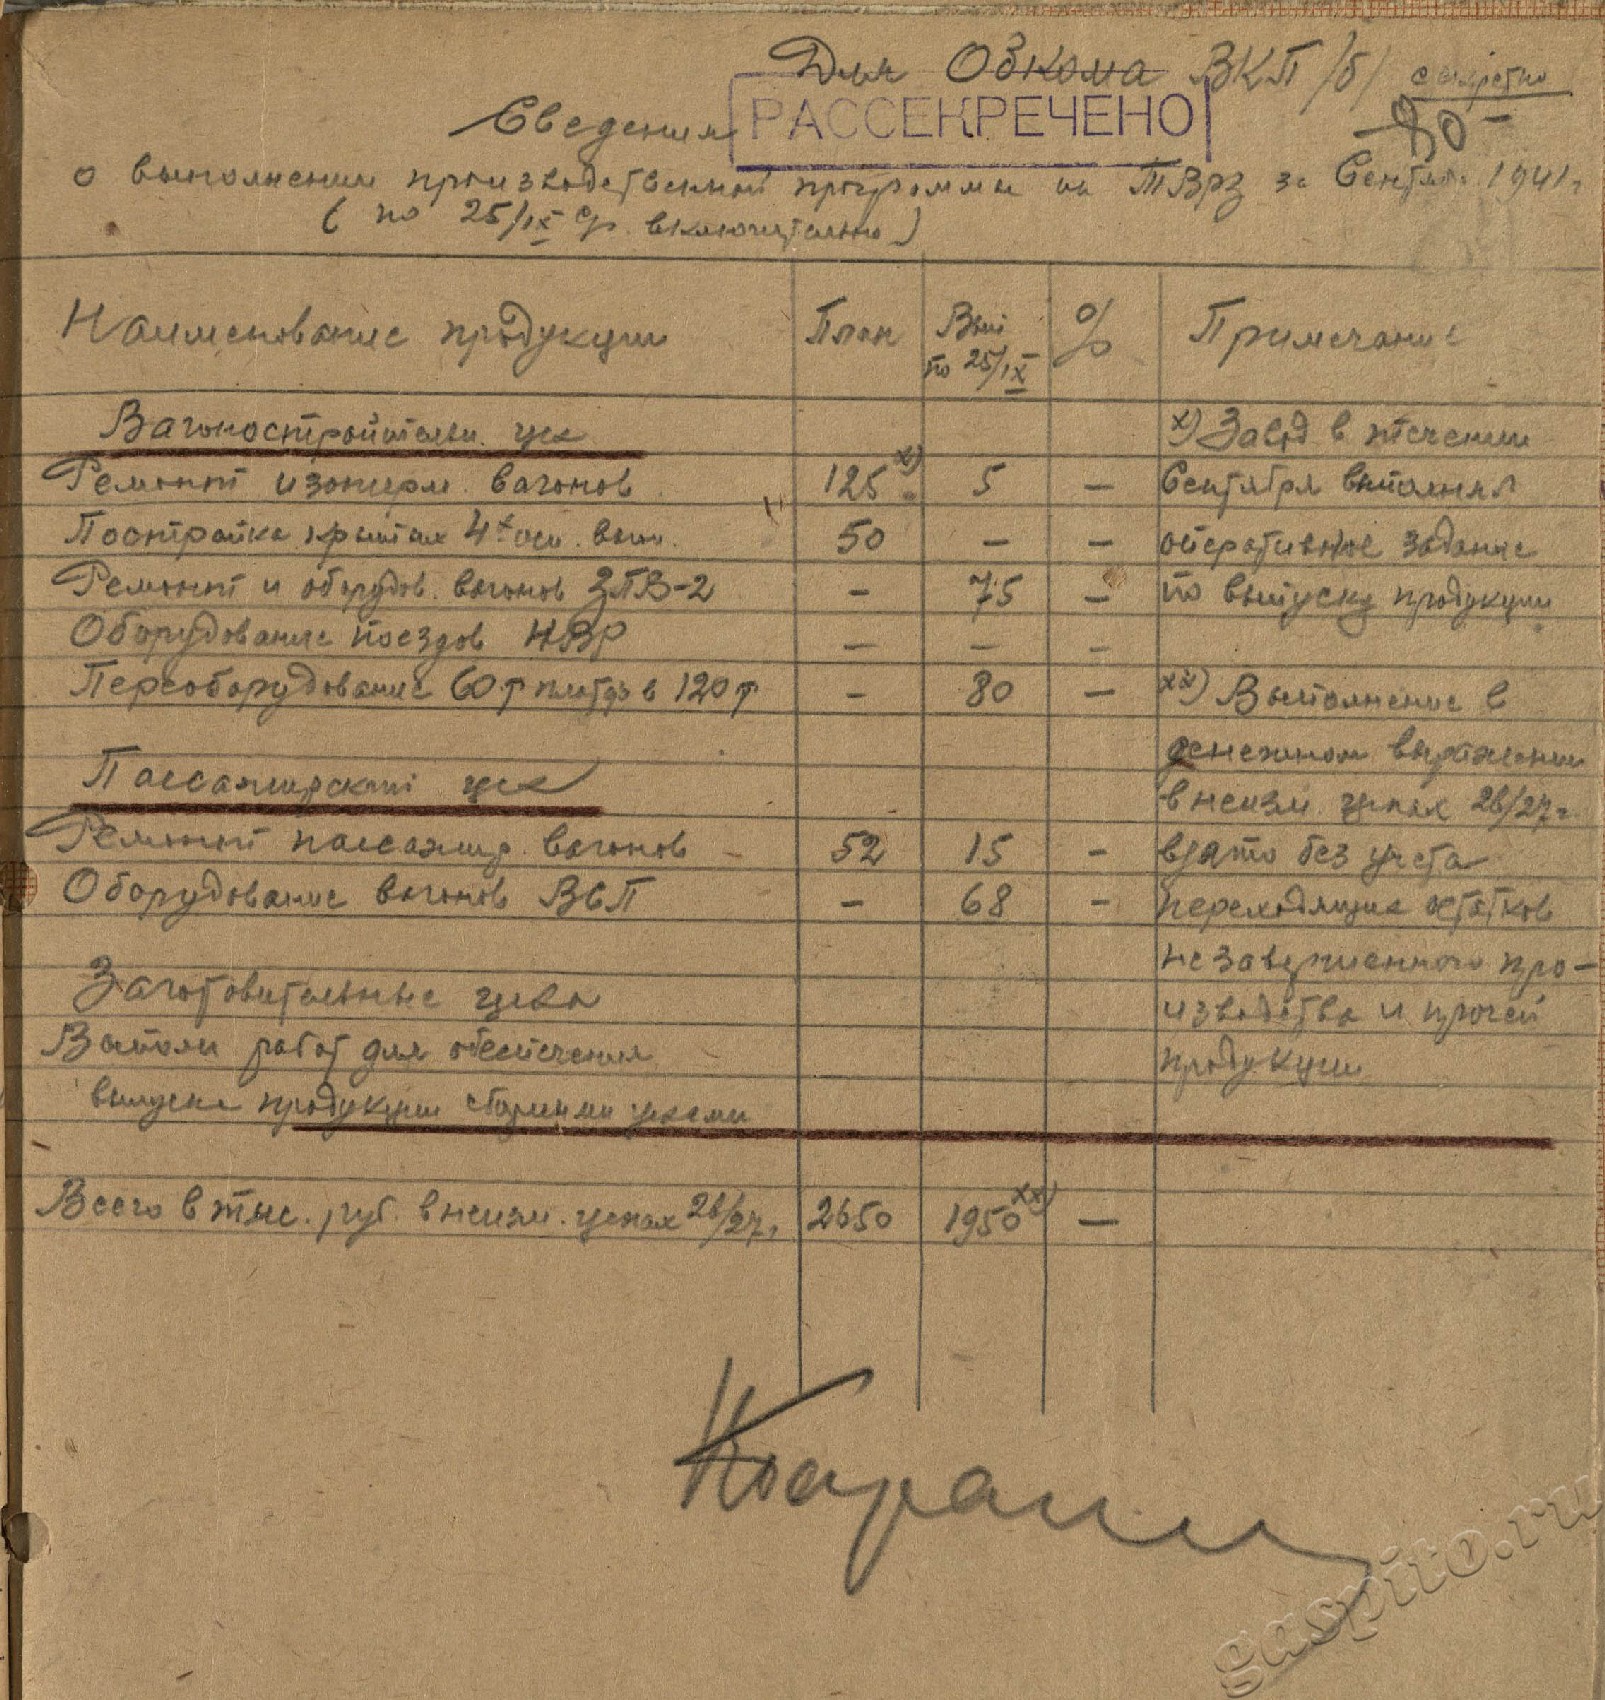 Для Обкома ВКП/б/ секретно
РАССЕКРЕЧЕНО
Сведения
о выполнении производственной программы на ТВРЗ за Сентяб. 1941г
( по 25/IX с/г. включительно)
Наименование продукции План Вып по 25/IX % Примечание
Вагоностроительн. цех х) Завод в течении
Ремонт изотерм. вагонов 125 х) 5 — Сентября выполнял
Постройка крытых 4х осн. ваг. 50 — — оперативное задание
Ремонт и оборудов. вагонов ЗПВ-2 — 75 — по выпуску продукции
Оборудование поездов НВР — — —
Переоборудование 60т платф в 120т — 80 — хх) Выполнение в
денежном выражении
Пассажирский цех
в неизм. ценах 26/27г.
Ремонт пассажир. вагонов 52 15 — взято без учета
Оборудование вагонов ВСП — 68 — переходящих остатков
незавершенного про-
Заготовительные цеха
изводства и прочей
Выполн работ для обеспечения
продукции
выпуска продукции сборными цехами
Всего в тыс. руб. в неизм. ценах 26/27г. 2650 1950 хх) —
gaspito.ru